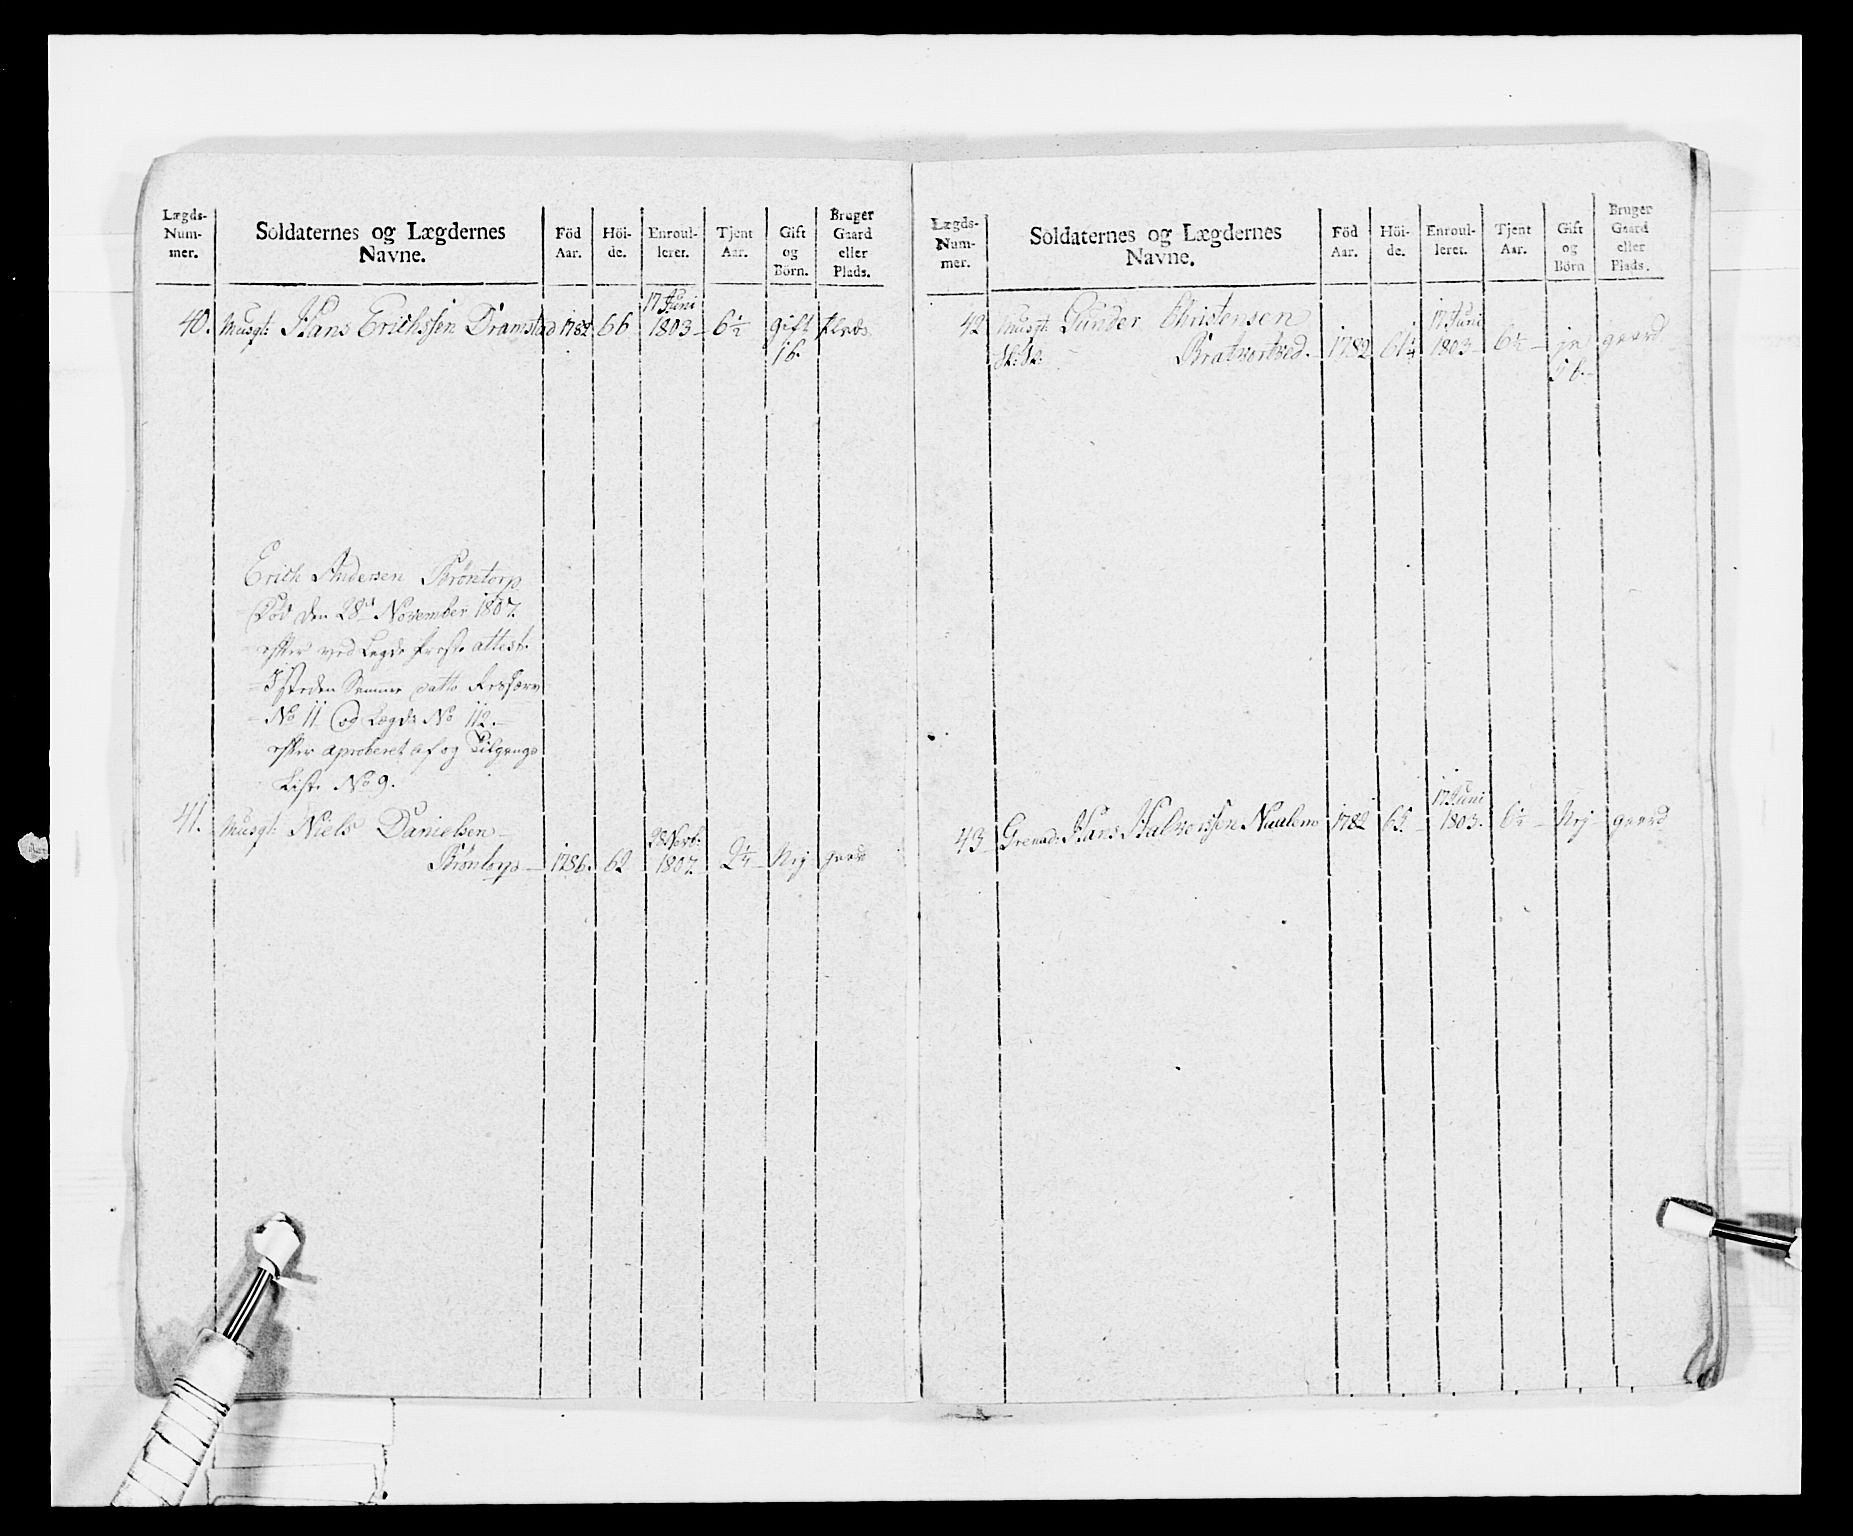 Lægds-Num-mer.
Soldaternes og Lægdernes Navne.
Föd Aar.
Höi-de.
Enroul-leret.
Tjent Aar.
Gift og Börn.
Bruger Gaard eller Plads.
17 Juni
40. Musqt: Hans Erichssen Dramstad 1782 66 1803 6½ gift Plads
1 b.
Erich Andersen Bröntorp
Död den 28d November 1807.
efter ved Legds Præst. attest.
Isteden Samme datto
No 11 og Lægds No 112.
efter aproberet Af og Tilgangs
List. No 9.
41. Musqt: Niels Danielsen
28 Novb:
Bröntorp 1786. 62 1807. 2¼ Nej gaard
Lægds-Num-mer.
Soldaternes og Lægdernes Navne.
Föd Aar.
Höi-de.
Enroul-leret.
Tjent Aar.
Gift og Börn
Bruger Gaard eller Plads.
42 Musqt: Gunder Christensen
17 Juni
1782 61¼ 1803 6½ ja gaard
5 b.
17 Juni
43 Grenad: Hans Halvorssen 1782 65. 1803. 6½ Nej gaard